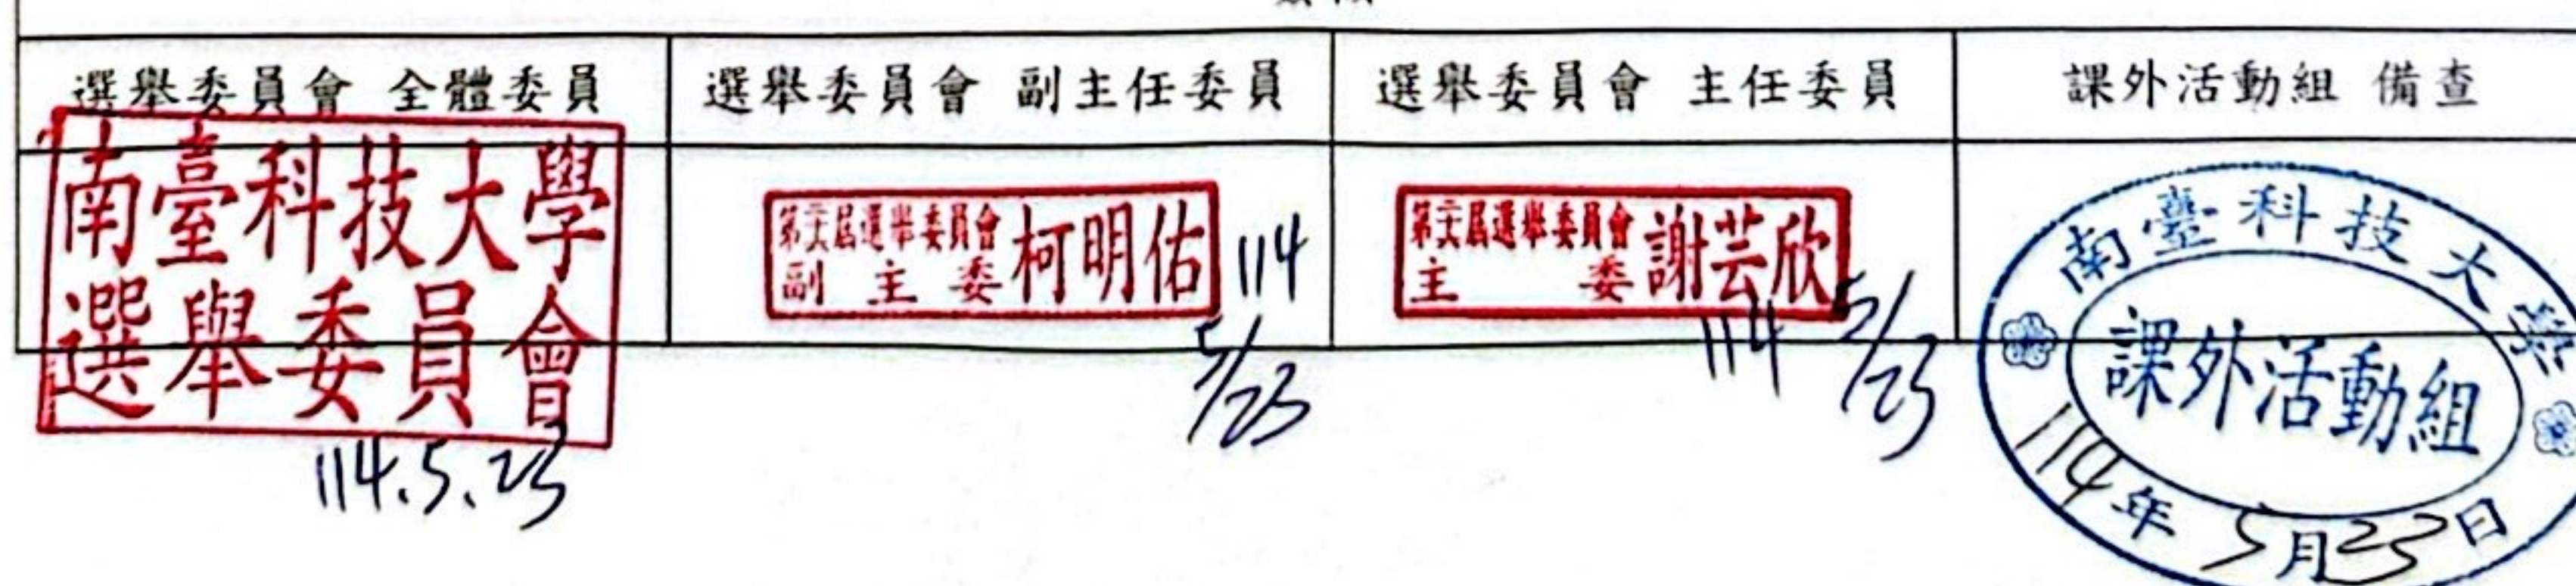 選舉委員會 全體委員
選舉委員會 副主任委員
選舉委員會 主任委員
課外活動組 備查
南臺科技大學
選舉委員會
114.5.23
選舉委員會
副主委
柯明佑
114
5/23
選舉委員會
主委
謝芸欣
114
5/23
南臺科技大學
課外活動組
114年5月23日